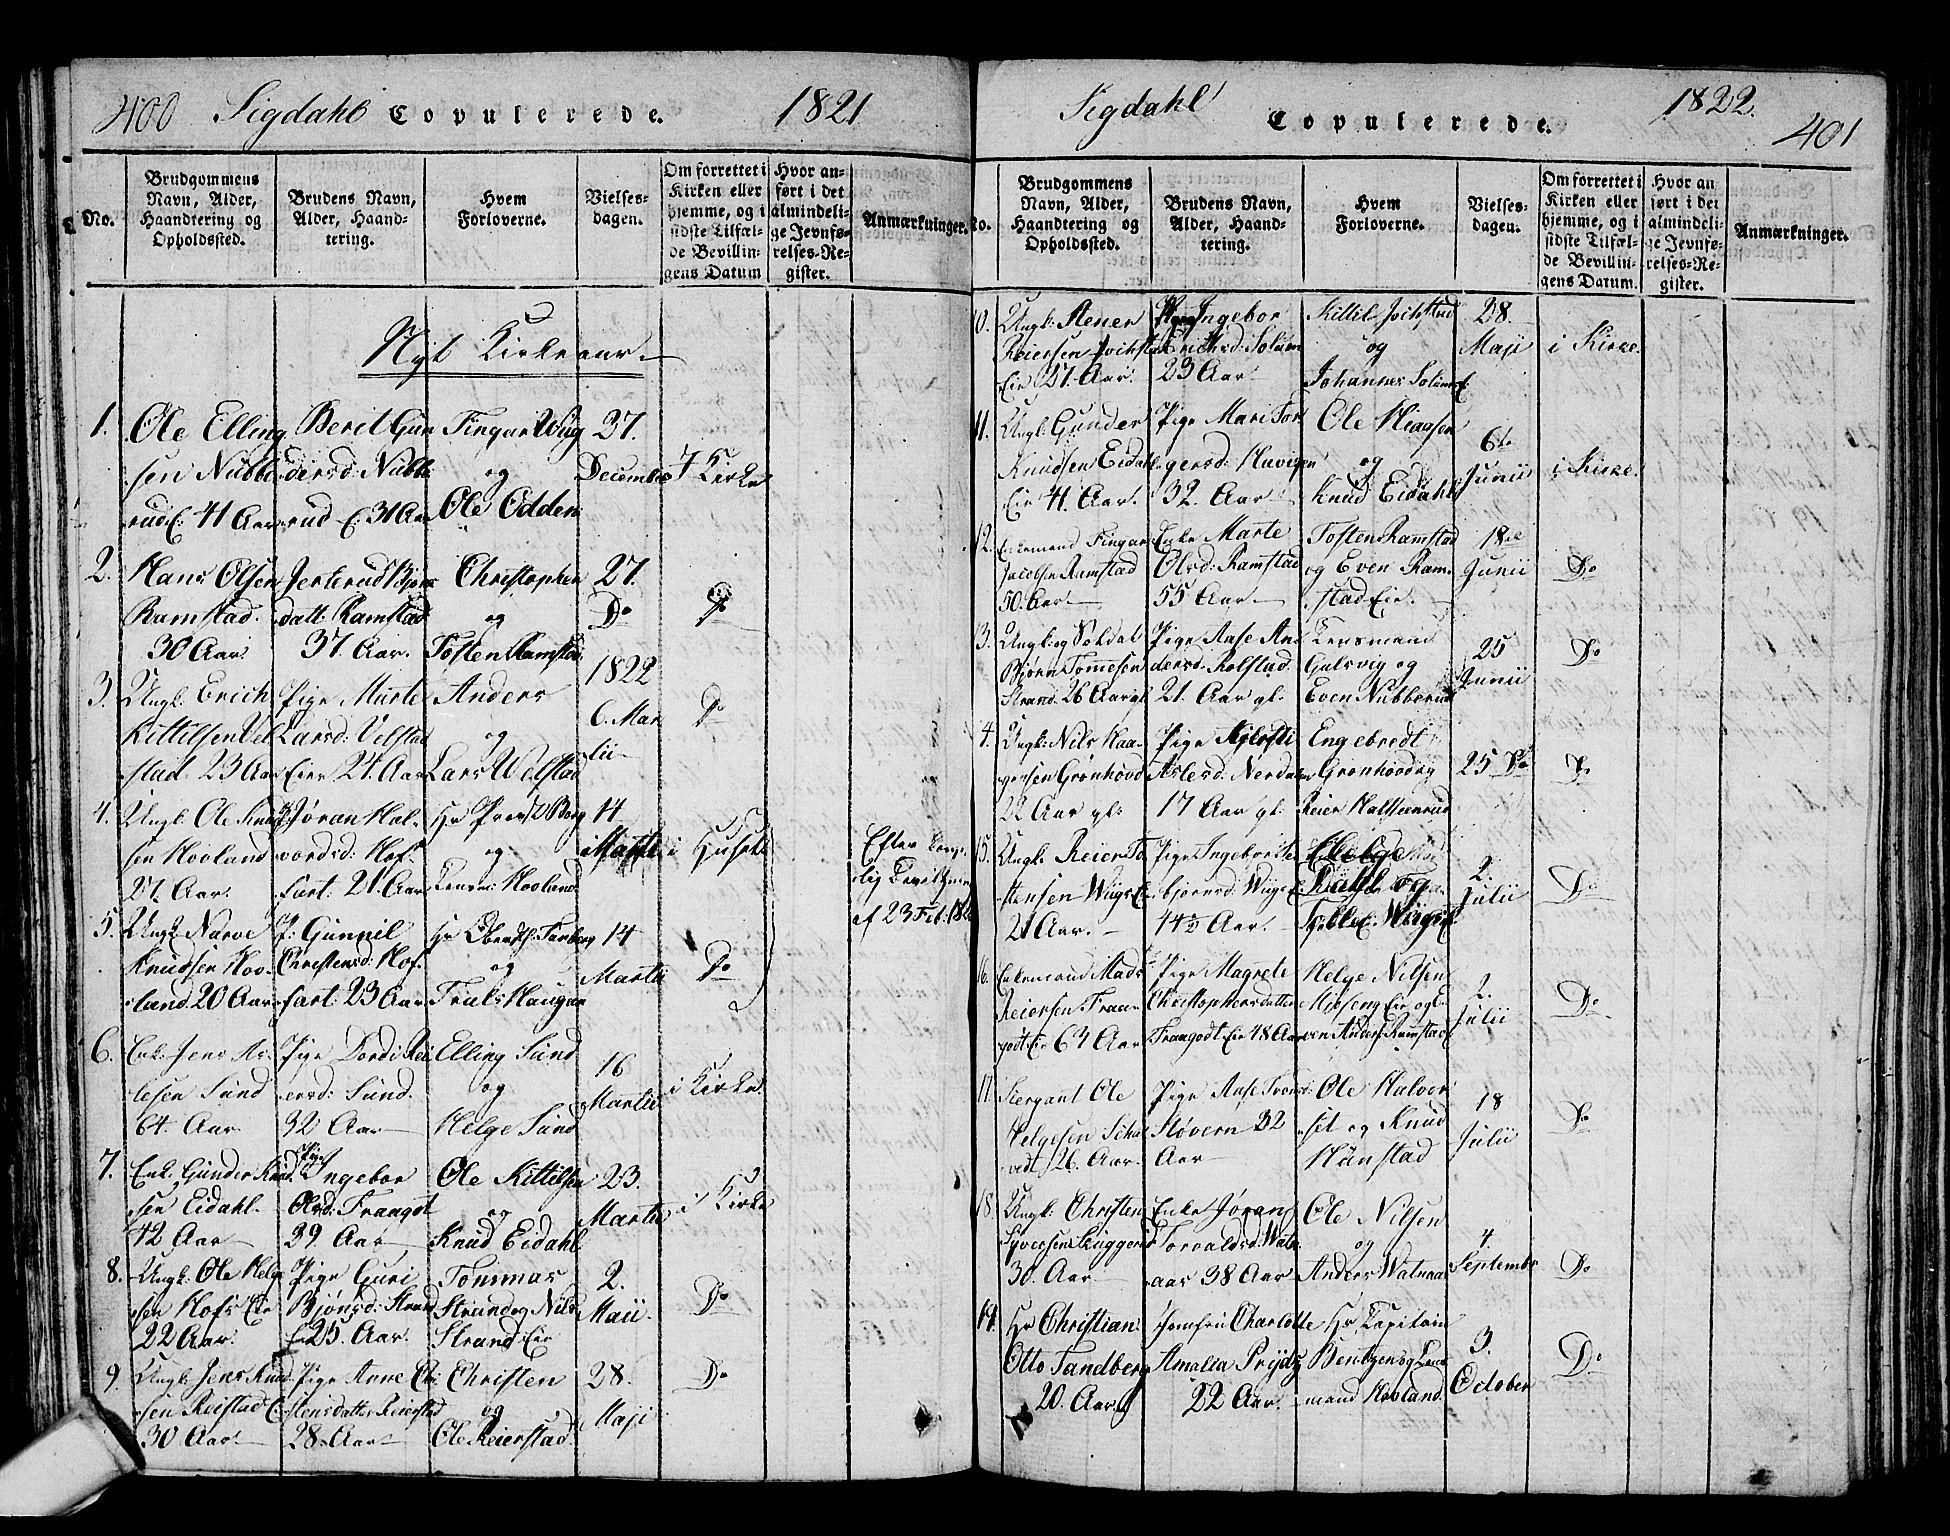 400 Sigdahl Copulerede. 1821
No.
Brudgommens
Navn, Alder,
Haandtering og
Opholdssted.
Brudens Navn,
Alder, Haand-
tering.
Hvem
Forloverne.
Vielses-
dagen.
Om forrettet i
Kirken eller
hjemme, og i
sidste Tilfæl-
de Bevillin-
gens Datum
Hvor an-
ført i det
almindeli-
ge Jevnfø-
relses-Re-
gister.
Anmærkninger.
Nyt Kirkeaar
1.
Ole Elling
sen Nubbe
rud E: 41 Aar
Berit Gun
dersd: Nubbe
rud E: 31 Aar
Fingar Wiig
og
Ole Odden
27.
December
i Kirke
2.
Hans Olsen
Ramstad.
30 Aar
Jertrud Bjørns
datt: Ramstad
37. Aar.
Christopher
og
Tosten Ramstad
27.
Do
Do
3.
Ungk: Erich
Kittilsen Vel
stad 23 Aar
Pige Marte
Larsd: Velstad
Eier 24. Aar
Anders
og
Lars Welstad
1822
6. Mar
tii
Do
4.
Ungk: Ole Knud
sen Hovland
27. Aar.
Jøran Hal-
vordsd: Hof-
fart: 21. Aar
Hr Berg
og
Lensm: Hovland
14
Martii
i Huset
Efter Konge
lig Bevilling
af 23 Feb: 182
5.
Ungk: Narve
Knudsen Hov-
land 20 Aar
P: Gunnil
Christensd: Hof-
fart: 23 Aar
Hr Tanberg
og
Truls Haugan
14
Martii
Do
6.
Enk: Jens As-
lesen Sund
64. Aar
Pige Dordi Rei
ersd: Sund.
32 Aar
Elling Sund
og
Helge Sund
16
Martii
i Kirke
7.
Enk: Gunder Knud
sen Eidahl.
42 Aar
Pige
Ingebor
Olsd: Fraagot
39. Aar
Ole Kittilsen
og
Knud Eidahl
23.
Martii
i Kirke
8.
Ungk: Ole Helge
sen Hofs Eie
22 Aar.
Pige Guri
Bjønsd: Strand
E: 25. Aar.
Tommas
Strand og Nils
Strand Eie
2.
Maii.
Do
9.
Ungk: Jens Knud
sen Reistad E:
30 Aar
Pige Anne Chri
stensdatter Reierstad
28. Aar
Christen
og
Ole Reierstad.
28.
Maji
Do
Sigdahl Copulerede. 1822. 401
No.
Brudgommens
Navn, Alder,
Haandtering og
Opholdssted.
Brudens Navn,
Alder, Haand-
tering.
Hvem
Forloverne.
Vielses-
dagen.
Om forrettet i
Kirken eller
hjemme, og i
sidste Tilfæl-
de Bevillin-
gens Datum.
Hvor an
ført i det
almindeli-
ge Jevnfø-
relses-Re-
gister.
Anmærkninger.
10.
Ungk: Rener
Reiersen
Eie 27. Aar.
Pige Ingebor
Erichsd: Solum
23 Aar
Kittil
og
Johannes Solum E:
28.
Maji
i Kirke.
11.
Ungk: Gunder
Knudsen Eidahl
Eie 41. Aar.
Pige Mari Tor
gersd:
32. Aar
Ole
og
Knud Eidahl
6te
Junii
i Kirke.
12.
Enkemand Fingar
Jacobsen Ramstad
50. Aar
Enke Marte
Olsd: Ramstad
55 Aar
Tosten Ramstad
og Even Ram-
stad Eie.
18de
Junii
Do
13.
Ungk: og Soldat
Bjørn Tomesen
Strand. 26 Aar gl.
Pige Aase An
dersd: Rolstad.
21. Aar gl.
Lensmand
Gulsvig og
Even Nubberud
25
Junii
Do
14.
Ungk: Nils Haa-
gensen Grønhovd
22 Aar gl:
Pige Kjersti
Aslesd: Nerdal
17 Aar gl.
Engebredt
Grønhovd og
Reier Halsteinrud
25 Do
Do
15.
Ungk: Reier To
stensen Wiigs E:
21 Aar.
Pige Ingebor
bjørnsd: Wiigs E:
44½ Aar.
2.
Julii
Do
16.
Enkemand Mads
Reiersen Fraa-
godt Eie 63 Aar
Pige Magrete
Christophersdatter
Fraagodt Eie 48 Aar
Helge Nilsen
Eie og E-
ven Anders: Ramstad
2.
Julii
Do
17.
Sergant Ole
Helgesen Scha
redt 26. Aar.
Pige Aase Trons:
Støvern 32
Aar
Ole Halvor
set og Knud
Hønstad
18
Julii
Do
18.
Ungk: Christen
Syversen Skuggerud
30. Aar
Enke Jøran
Torvaldsd: Watn
aas 38 Aar
Ole Nilsen
og
Anders Watnaas
4.
Septembr
Do
19.
Hr Christian
Otto Tandberg
20. Aar
Jomfru Charlotte
Amalia Prydz
22 Aar.
Hr Capitain
Bentzen og Lens
mand Hovland.
3.
October
Do